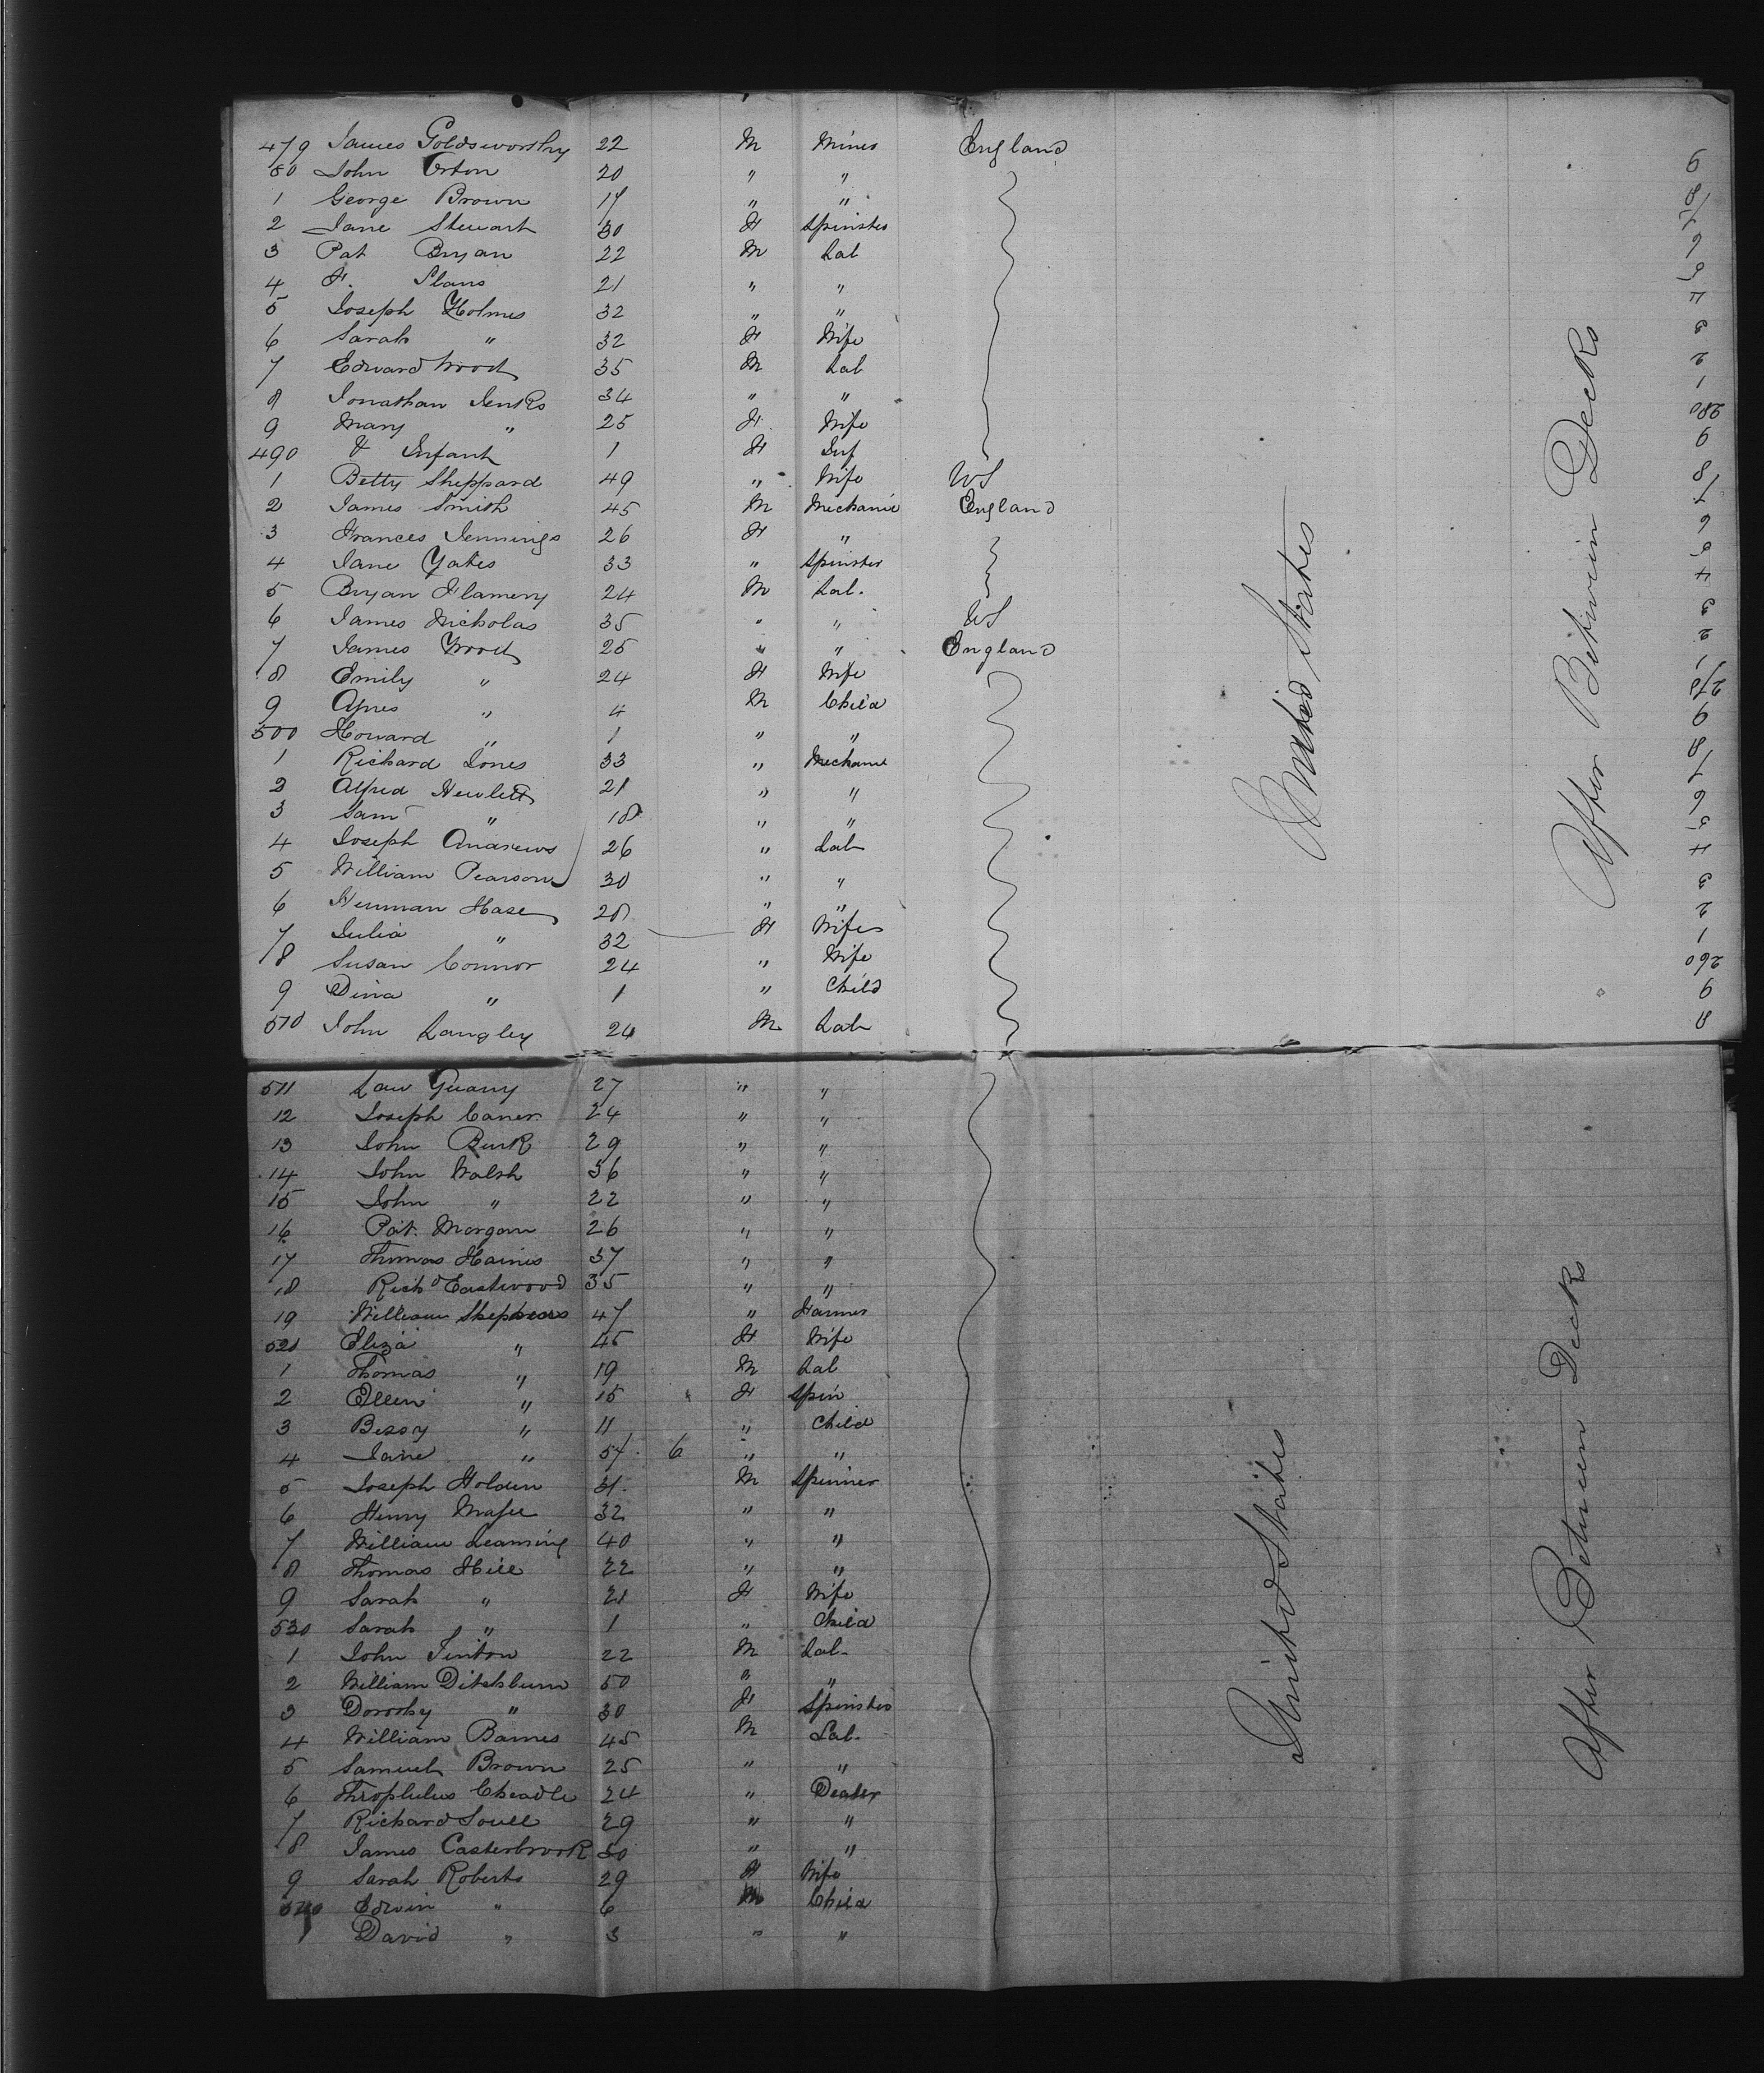 479 James Goldsworthy 22 M Miner England
80 John Orton 20 " "
1 George Brown 17 " "
2 Jane Stewart 30 F Spinster
3 Pat Bryan 22 M Lab
4 F. 21 " "
5 Joseph Holmes 32 " "
6 Sarah " 32 F Wife
7 Edward Wood 35 M Lab
8 Jonathan Jenks 34 " "
9 Mary " 25 F. Wife
490 & Infant 1 F Inf
1 Betty Sheppard 49 " Wife US
2 James Smith 45 M Mechanic England
3 Frances Jennings 26 F "
4 Jane Yates 33 " Spinster
5 Bryan Flamery 24 M Lab.
6 James Nicholas 35 " " US
7 James Wood 25 " " England
8 Emily " 24 F Wife
9 " 4 M Child
500 Howard " 1 " "
1 Richard Jones 33 " Mechanic
2 Alfred Hewlett 21 " "
3 Sam " 18 " "
4 Joseph Andrews 26 " Lab
5 William Pearson 30 " "
6 Herman Hase 28 " "
7 Julia " 32 F Wife
8 Susan Connor 24 " Wife
9 Dina " 1 " Child
510 John Langley 24 M. Lab
United States
After Between Decks
9
8
7
6
5
4
3
2
1
280
9
8
7
6
5
4
3
2
1
270
9
8
7
6
5
4
3
2
1
260
9
8
511 Law 27 " "
12 Joseph Caner 24 " "
13 John Burk 29 " "
14 John Walsh 36 " "
15 John " 22 " "
16 Pat. Morgan 26 " "
17 Thomas Haines 37 " "
18 Richd Eastwood 35 " "
19 William 47 " Farmer
520 Eliza " 45 F Wife
1 Thomas " 19 M Lab
2 Ellen " 15 F Spin
3 Bessy " 11 " Child
4 Jane " 6 " "
5 Joseph Holden 31. M Spinner
6 Henry 32 " "
7 William Leaming 40 " "
8 Thomas Hill 22 " "
9 Sarah " 21 F Wife
530 Sarah " 1 " Child
1 John 22 M Lab.
2 William Ditchburn 50 " "
3 Dorothy " 30 F Spinster
4 William Barnes 45 M Lab.
5 Samuel Brown 25 " "
6 Cheadle 24 " Dealer
7 Richard 29 " "
8 James Casterbrook 30 " "
9 Sarah Roberts 29 F Wife
540 Edwin " 6 M Child
1 David " 3 " "
United States
After Between Decks